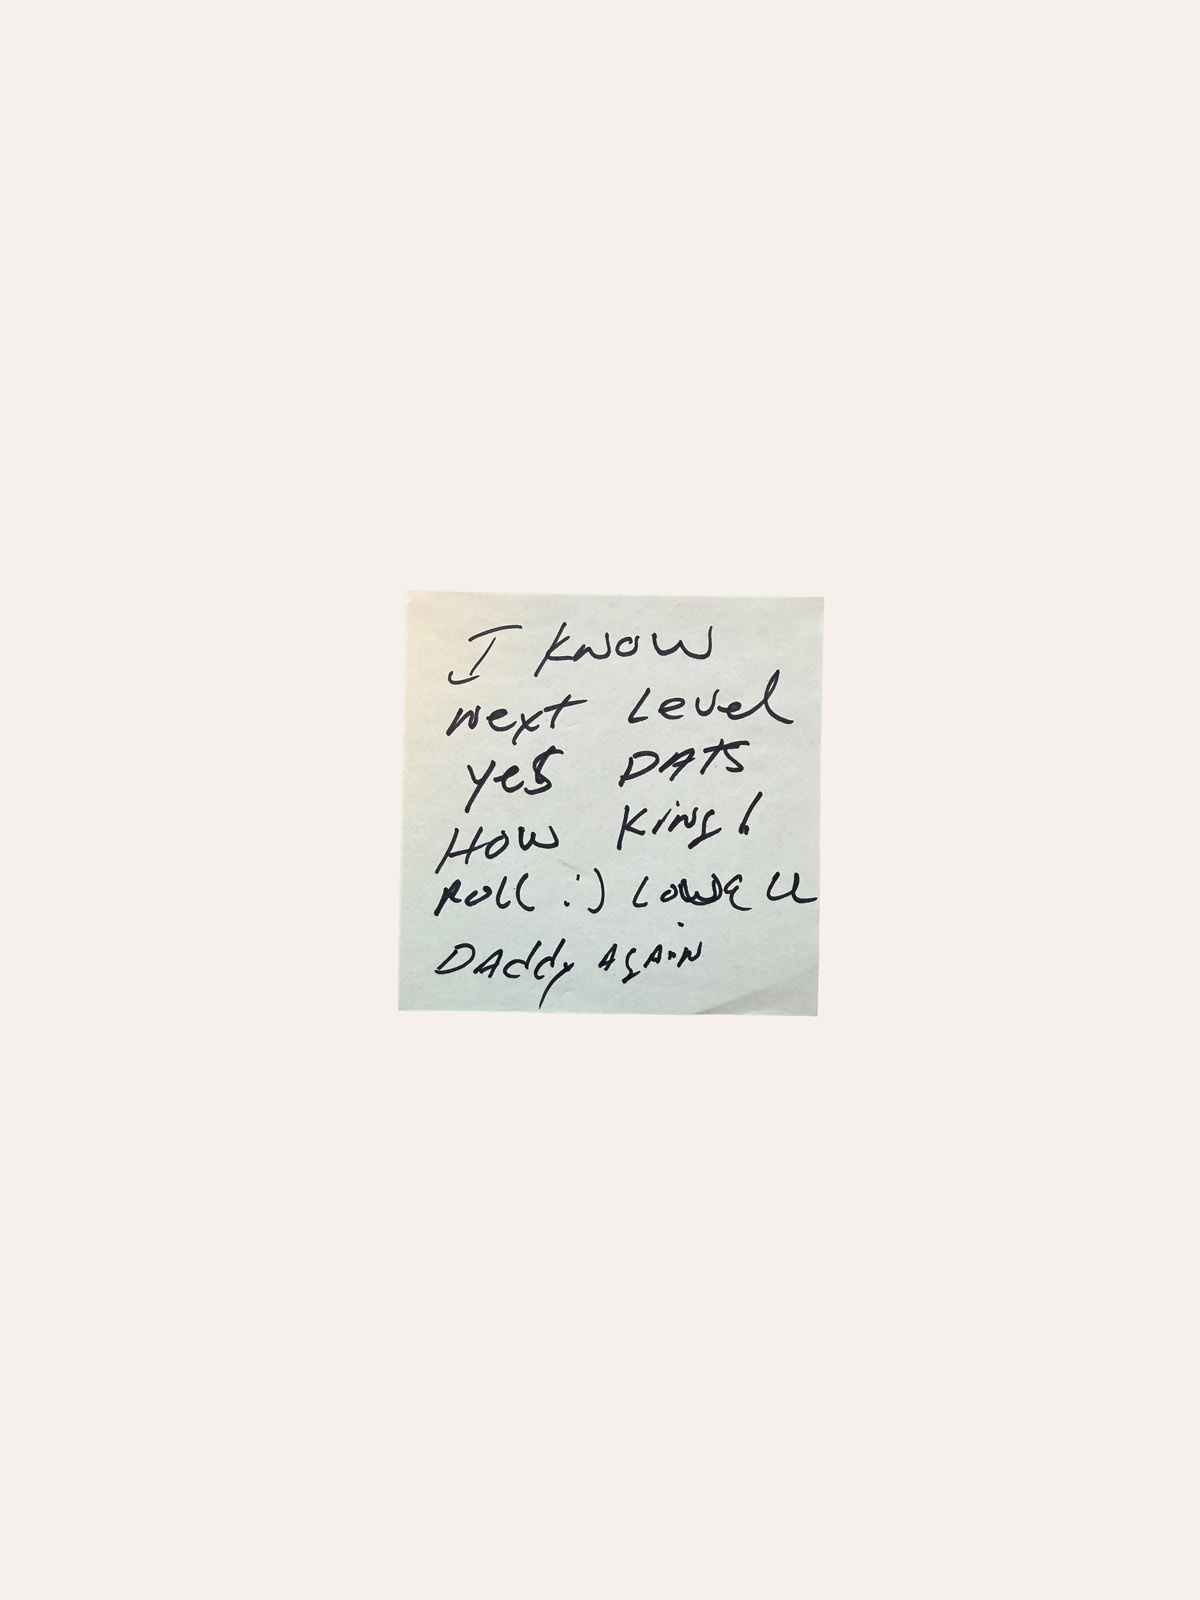 I KNOW
next Level
yes DATS
HOW King!
ROLL :)
DAddy AGAIN